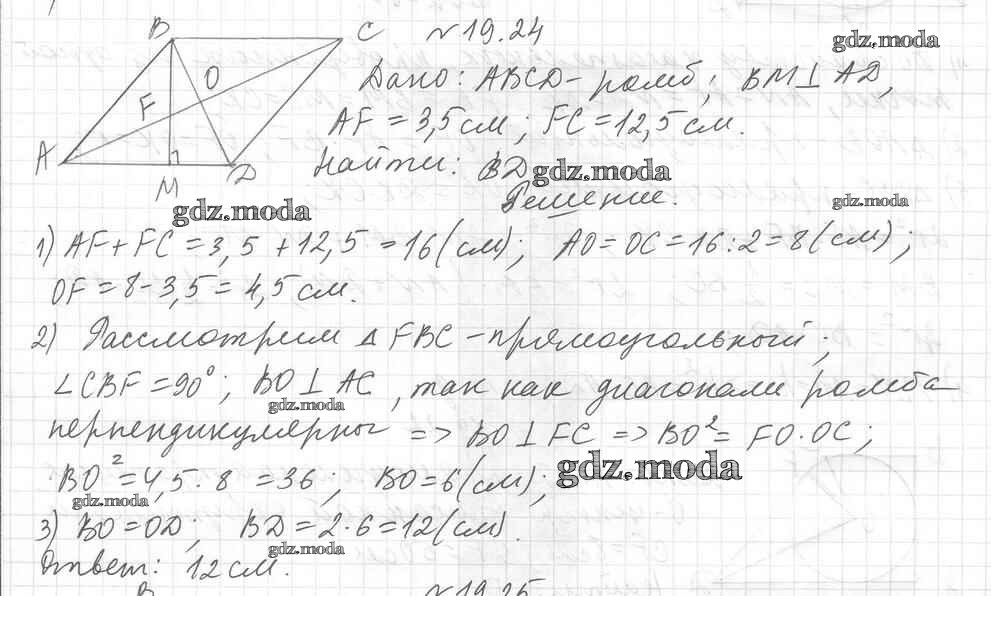 B C №19.24
gdz.moda
O Дано: ABCD - ромб; BM⊥AD,
F AF = 3,5 см; FC = 12,5 см.
A Найти: BD gdz.moda
M D Решение.
gdz.moda gdz.moda
1) AF + FC = 3,5 + 12,5 = 16 (см); AO = OC = 16 : 2 = 8 (см);
OF = 8 - 3,5 = 4,5 см.
2) Рассмотрим △ FBC - прямоугольный;
∠CBF = 90°; BO ⊥ AC, так как диагонали ромба
gdz.moda
перпендикулярны => BO ⊥ FC => BO² = FO·OC;
BO² = 4,5 · 8 = 36; BO = 6 (см);
gdz.moda gdz.moda
3) BO = OD; BD = 2·6 = 12 (см).
gdz.moda gdz.moda
Ответ: 12 см.
B №19.25